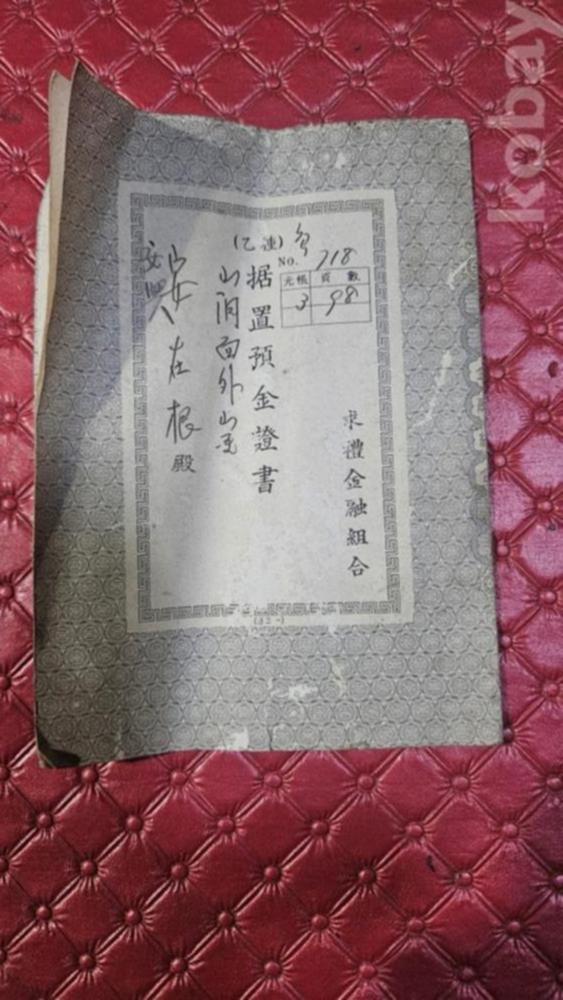 kobay
(乙種)
NO. 718
元帳 頁數
3 98
求禮金融組合
据置預金證書
山洞面外山里
安在根殿